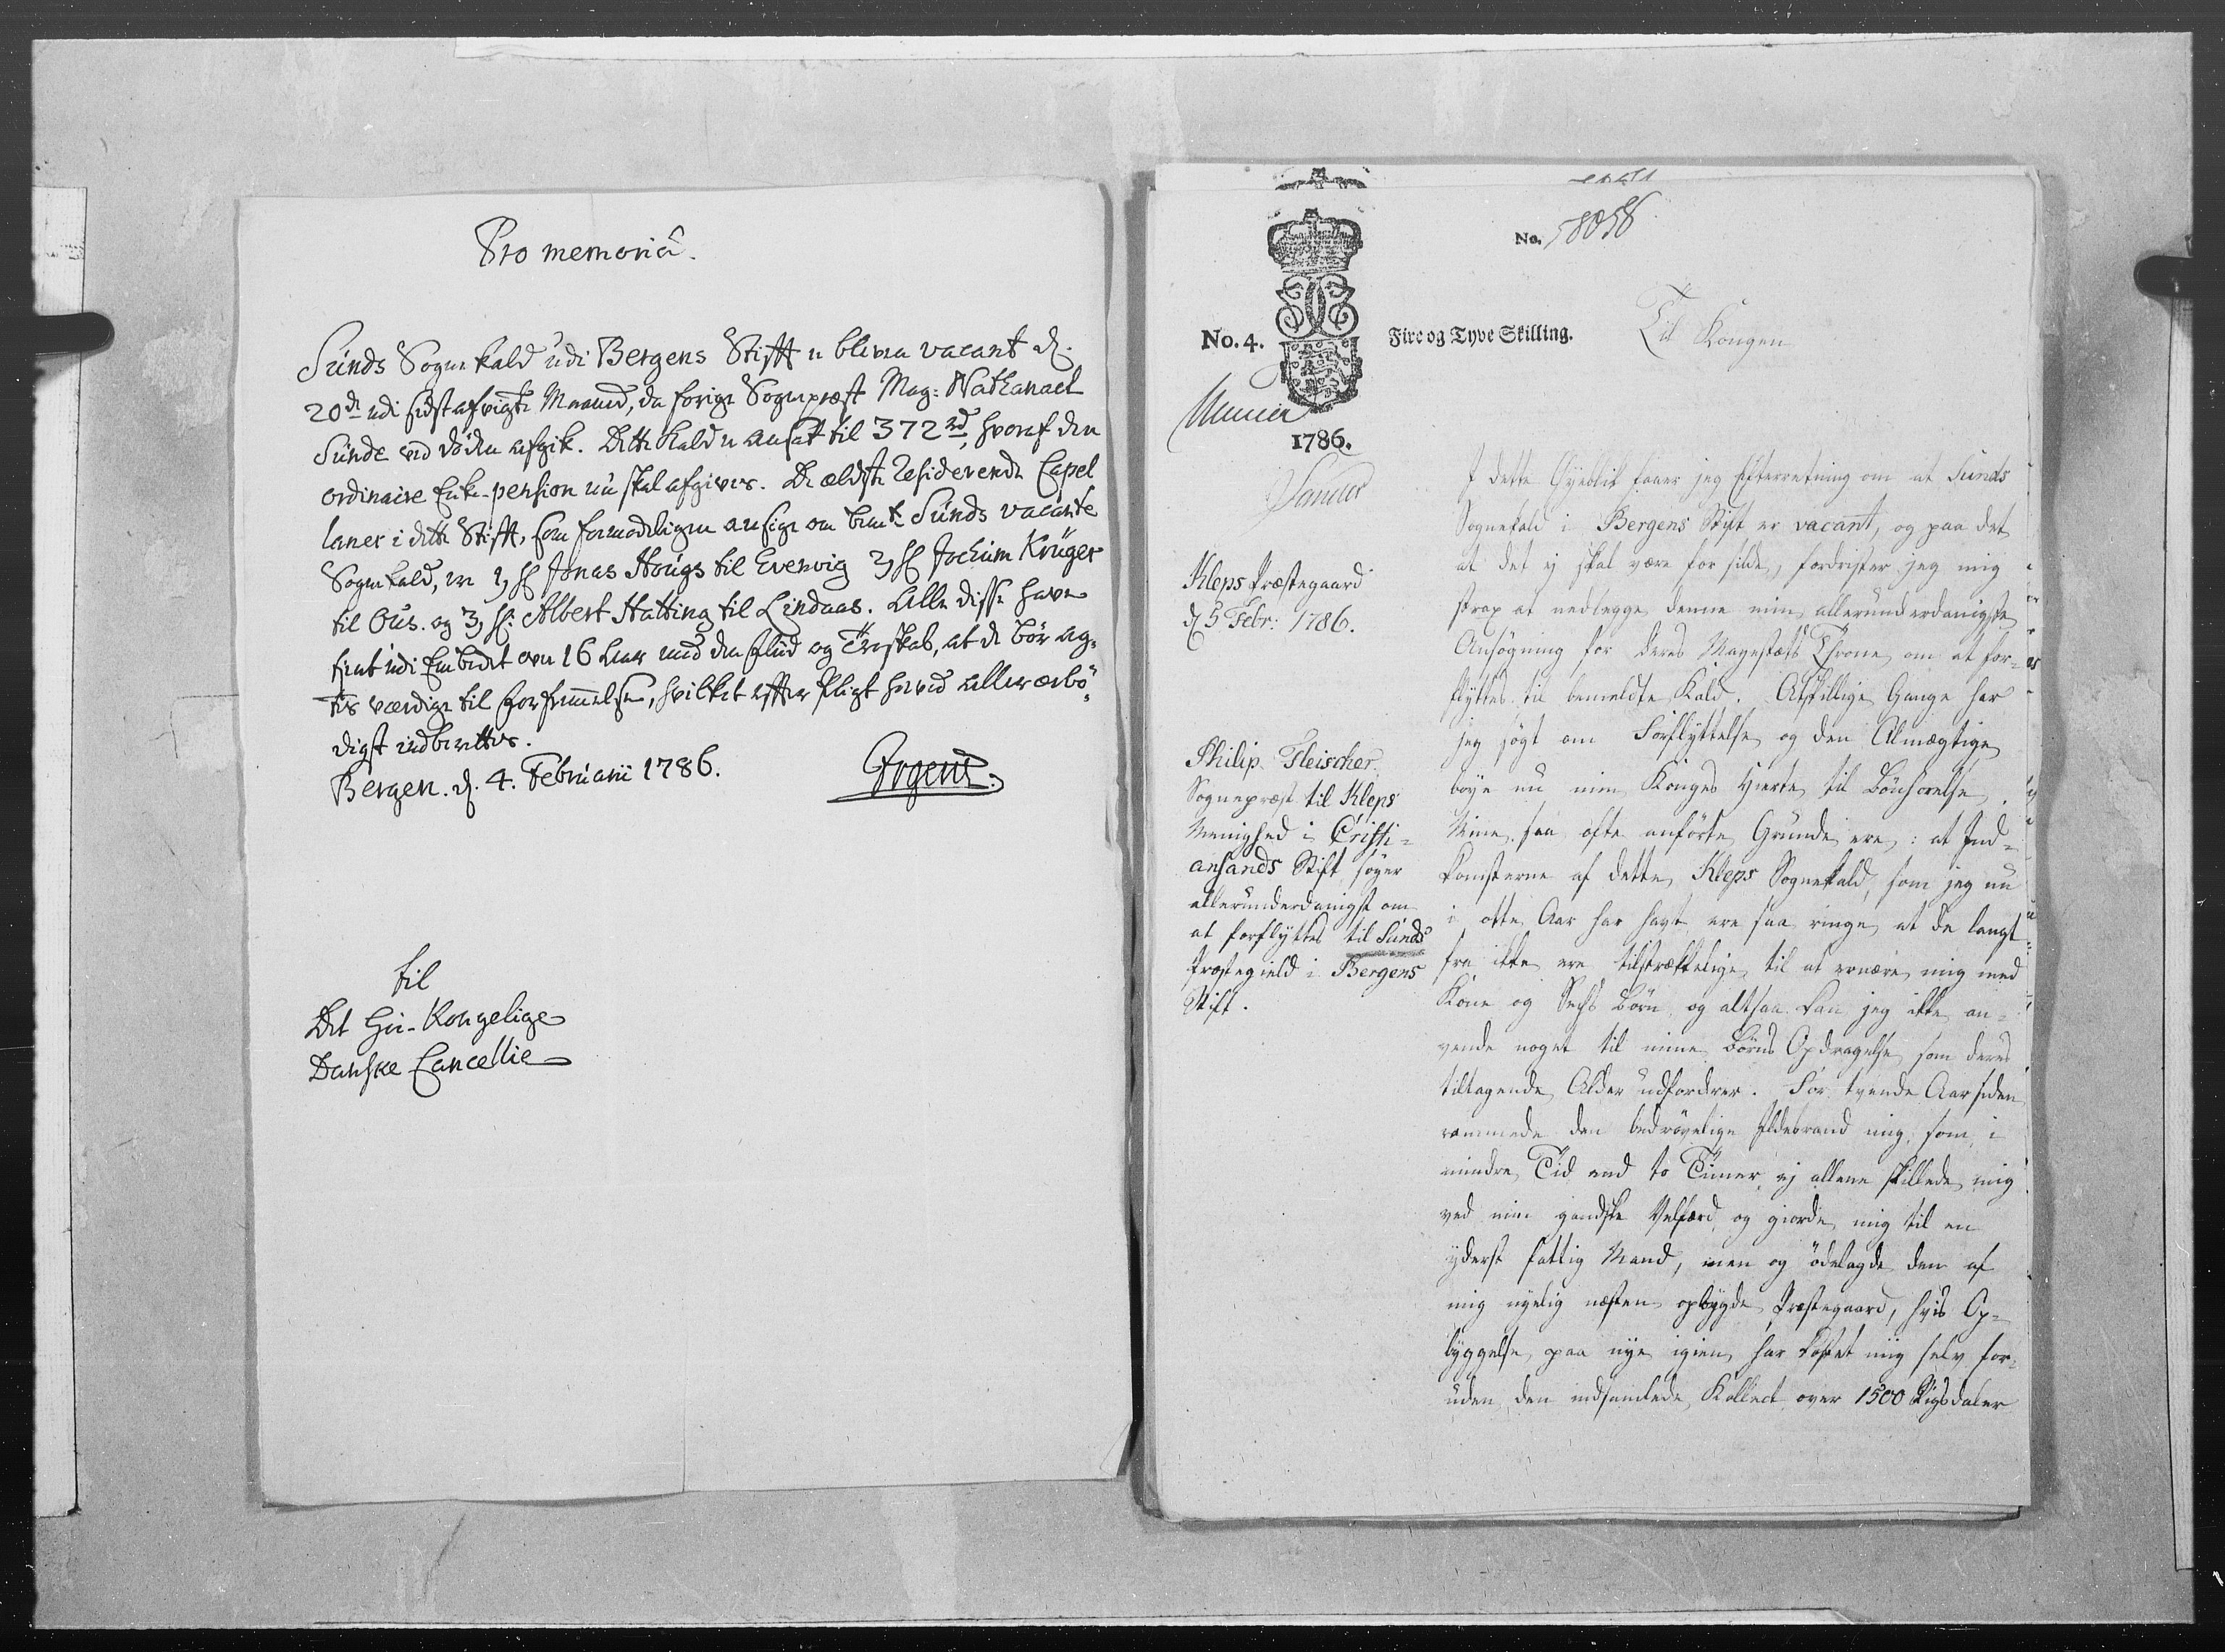 Pro memoriâ.
Sunds Sogne kald udi Bergens Stift er bleven vacant d.
20de udi sidst afvigte Maaned, da forige Sognepræst Mag: Nathanael
Sunde ved döden afgik. Dette Kald er ansat til 372 rd, hvoraf den
ordinaire Enke-pension nu skal afgives. De ældste Residerende Capel
laner i dette Stift, som formodeligen ansøge om bemte Sunds vacante
Sogne kald, er 1, Hr Jonas Hougs til Evenvig 2, Hr Jochim Krüger
til Ous. og 3, Hr: Albert Hatting til Lindaas. Alle disse have
tient udi Embedet over 16 Aar med den flid og Troeskab, at de bör ag-
tes værdige til forfremmelse, hvilket efter Pligt herved allerærbö-
digst indberettes.
Bergen. d. 4. Februarii 1786.
Irgens.
til
Det Høi-Kongelige
Danske Cancellie
No. 58058
No. 4.
Fire og Tyve Skilling.
Til Kongen
1786.
Kleps Præstegaard
d 5 Febr: 1786.
Philip Fleischer
Sognepræst til Kleps
Menighed i Cristi-
ansands Stift søger
allerunderdanigst om
at forflyttes til Sunds
Præstegield i Bergens
Stift.
I dette Øyeblik faaer jeg Efterretning om at Sunds
Sognekald i Bergens Stift er vacant, og paa det
at det ej skal være for silde, fordrister jeg mig
strax at nedlegge denne min allerunderdanigste
Ansögning for Deres Mayestæts Throne om at for-
flyttes til bemeldte Kald. Atskillige Gange har
jeg søgt om Forflyttelse og den Almægtige
böye nu min Konges Hierte til Bönhørelse.
Mine saa ofte anförte Grunde ere: at Ind-
komsterne af dette Kleps Sognekald, som jeg nu
i otte Aar har havt ere saa ringe, at de langt
fra ikke ere tilstrækkelige til at ernære mig med
Kone og Sex Børn og altsaa kan jeg ikke an-
vende noget til mine Børns Opdragelse som deres
tiltagende Alder udfordrer. For tvende Aar siden
rammede den bedrövelige Ildebrand mig, som i
mindre Tid end to Timer ej allene skillede mig
ved min gandske Velfærd og giorde mig til en
yderst fattig Mand, men og ödelagde den af
mig nyelig næsten opbygde Præstegaard, hvis Op-
byggelse paa nye igien har kostet mig selv for-
uden den indsamlede Kollect over 1500 Rigsdaler